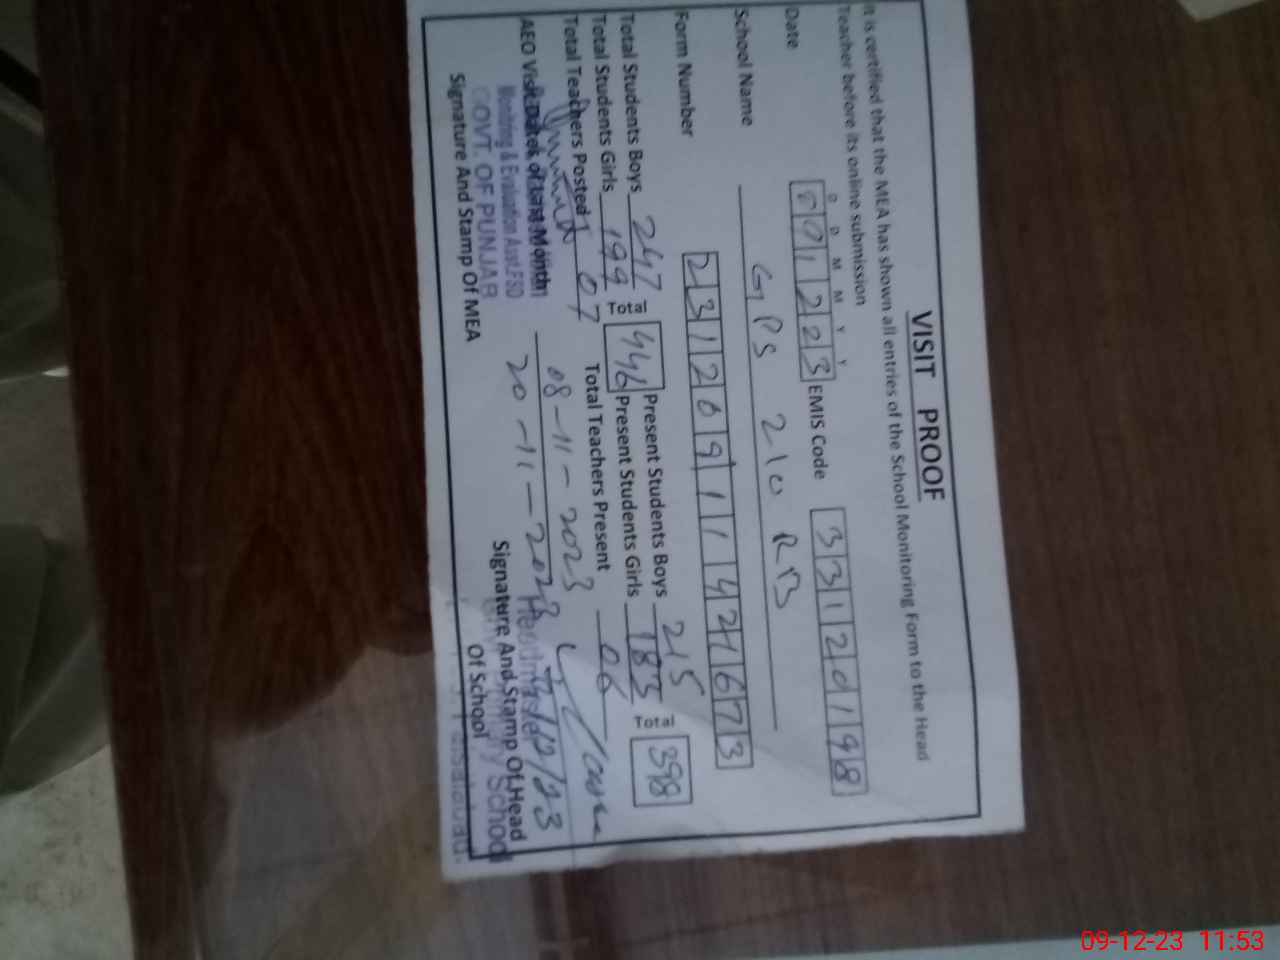 VISIT PROOF
It is certified that the MEA has shown all entries of the School Monitoring Form to the Head
Teacher before its online submission
D D M M Y Y
Date 091223 EMIS Code 33120198
School Name GPS 210 RB
Form Number
Total Students Boys 247 Total 446 Present Students Boys 215 Total 398
Total Students Girls 199 Present Students Girls 183
Total Teachers Posted 07 Total Teachers Present 06
AEO Visit Dates of Last Month 08-11-2023
20-11-2023
Monitoring & Evaluation Asst. FSD
GOVT. OF PUNJAB
Signature And Stamp Of MEA
Signature And Stamp Of Head
Of School
09-12-23 11:53